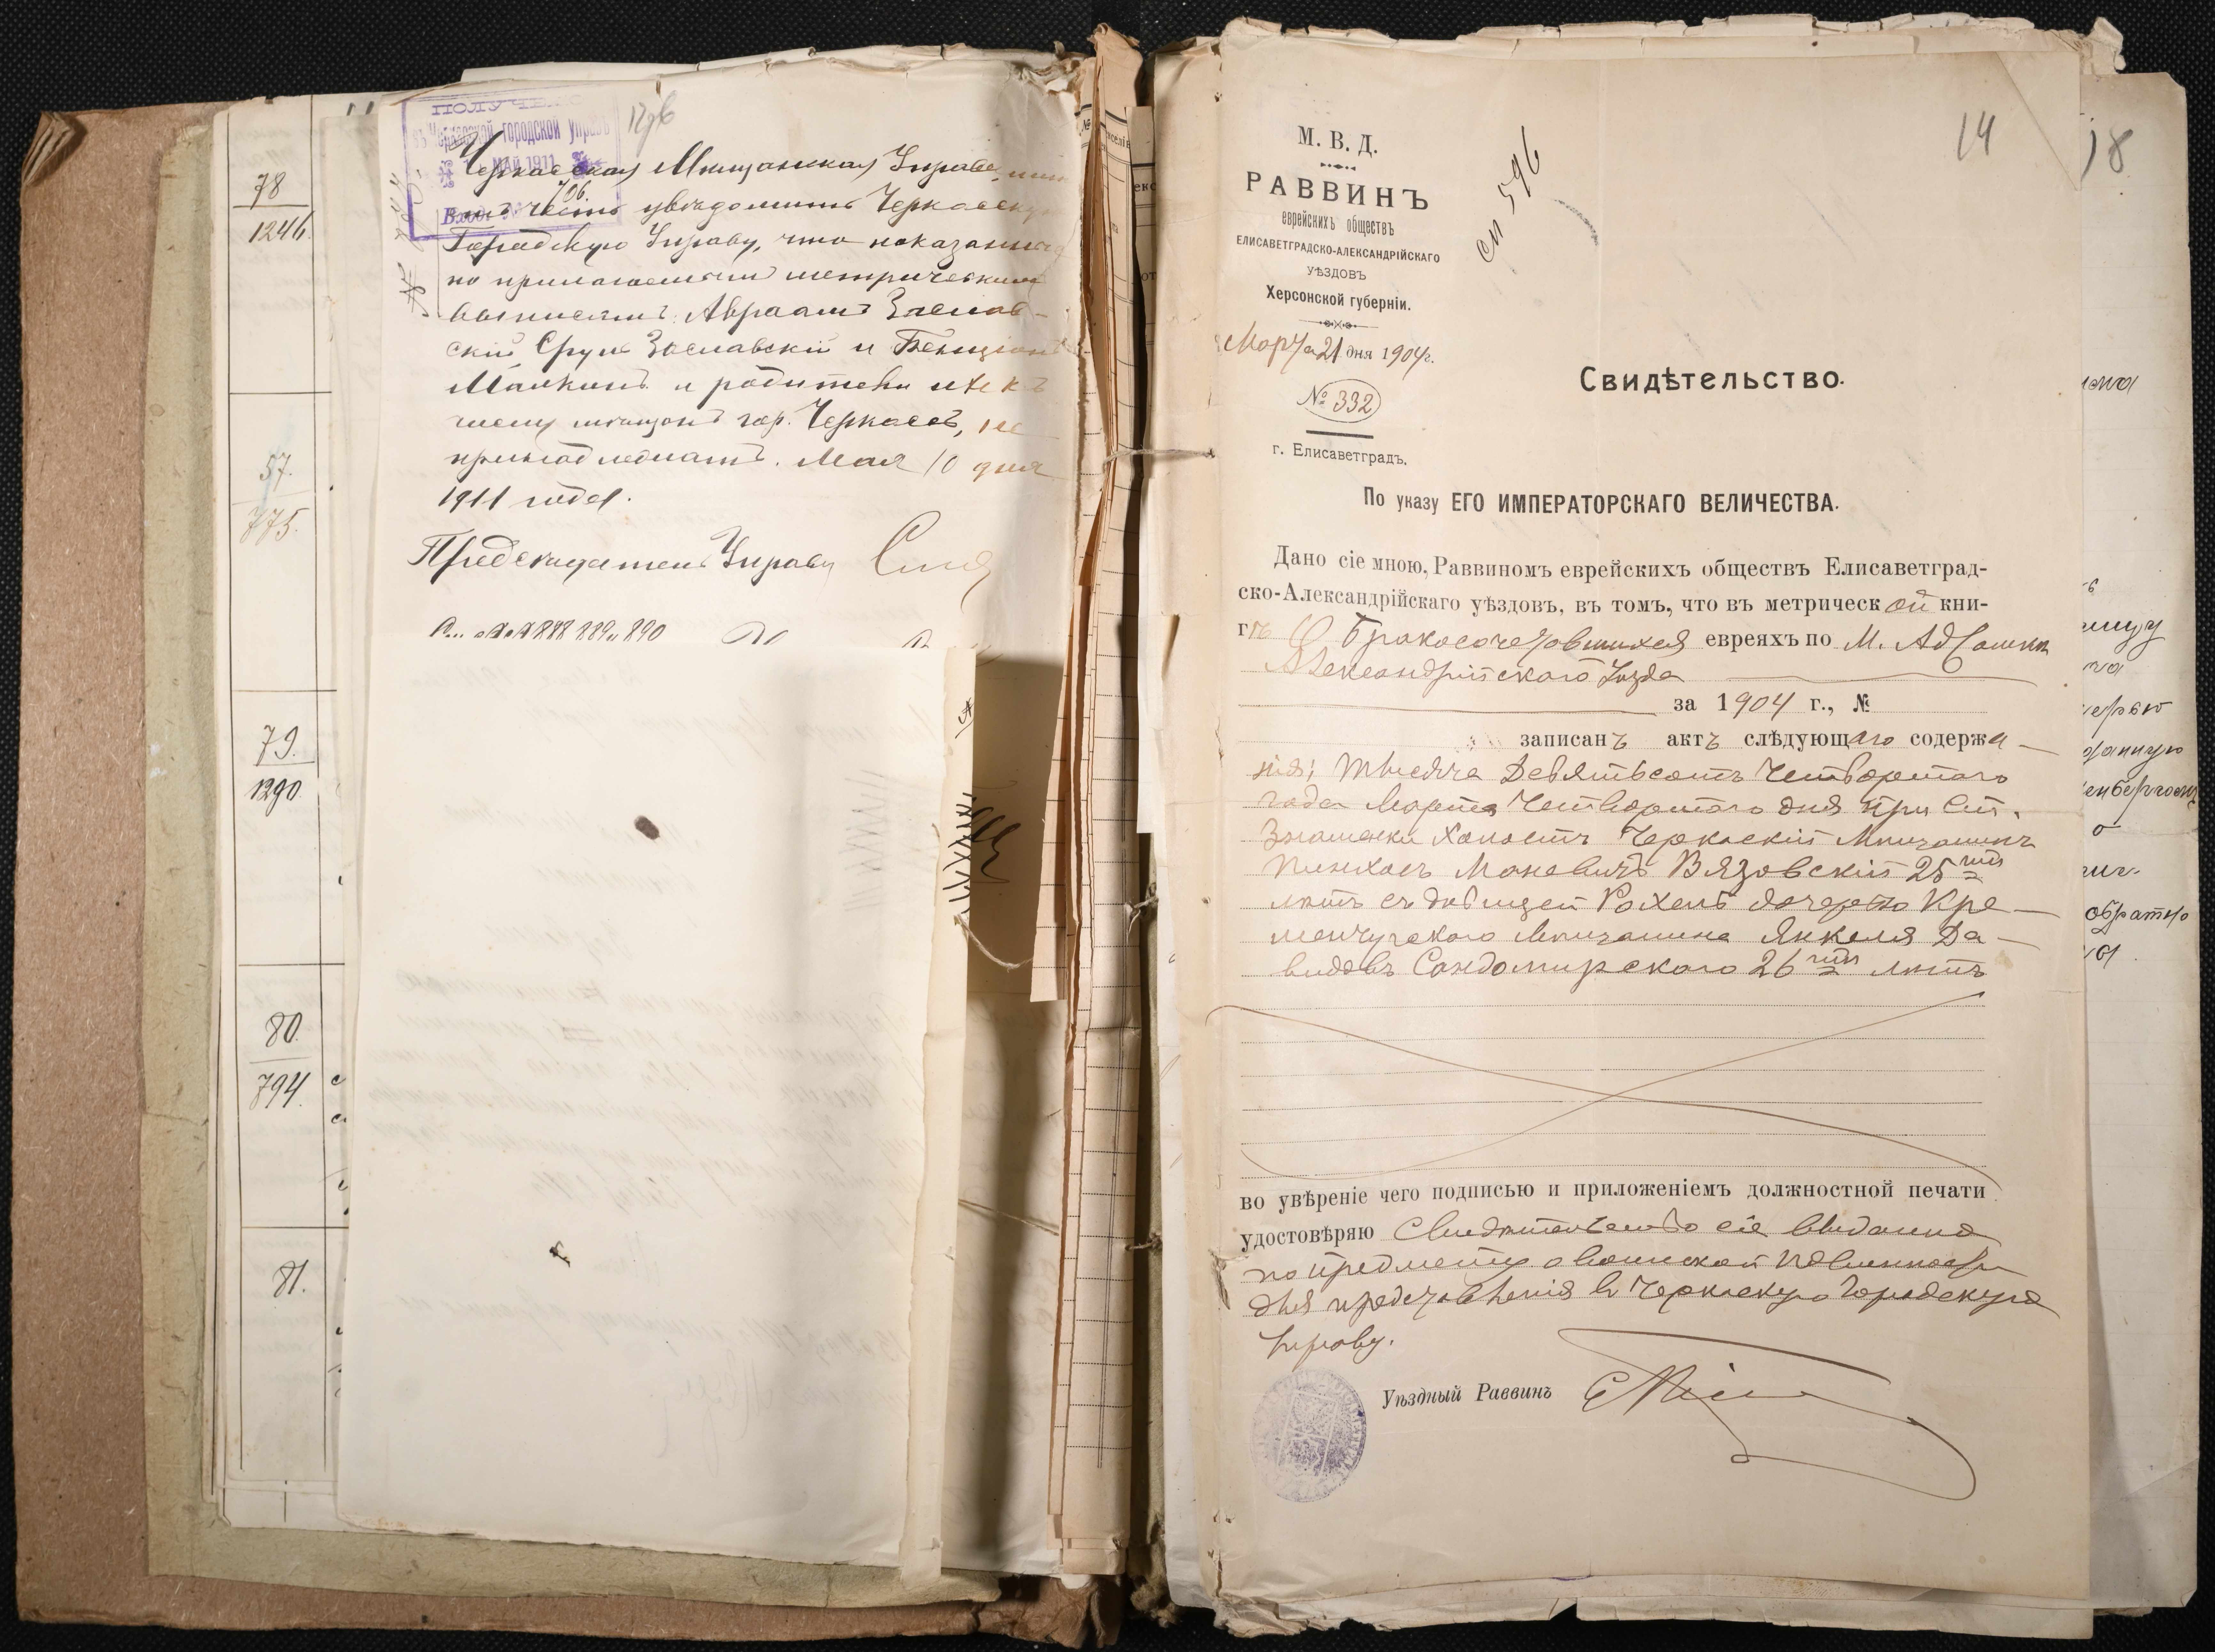 78
1246.
57.
775.
79.
1290.
80.
794.
81.
ПОЛУЧЕНО
въ Черкасской городской управѣ
МАЙ 1911
Вход. № 706
12об
Черкасская Мѣщанская Управа
честь увѣдомить Черкасскую
Городскую Управу, что показанные
по прилагаемымъ метрическимъ
выписямъ: Авраамъ Заслав-
скій, Сруль Заславскій и Бенціонъ
Малкинъ и родители ихъ къ
числу мѣщанъ гор. Черкасъ, не
принадлежатъ. Мая 10 дня
1911 года.
Предсѣдатель Управы
888 889 и 890
М. В. Д.
РАВВИНЪ
еврейскихъ обществъ
ЕЛИСАВЕТГРАДСКО-АЛЕКСАНДРІЙСКАГО
УѢЗДОВЪ
Херсонской губерніи.
Марта 21 дня 1904 г.
№ 332
г. Елисаветградъ.
сп 596
14
Свидѣтельство.
По указу ЕГО ИМПЕРАТОРСКАГО ВЕЛИЧЕСТВА.
Дано сіе мною, Раввиномъ еврейскихъ обществъ Елисаветград-
ско-Александрійскаго уѣздовъ, въ томъ, что въ метрической кни-
гѣ о бракосочетовшихся евреяхъ по М. Аджамкѣ
Александрійскаго Уѣзда
за 1904 г., №
записанъ актъ слѣдующаго содержа-
нія: Тысяча Девятьсотъ Четвертаго
года Марта Четвертаго дня при Ст.
Знаменки Холостъ Черкаскій Мѣщанинъ
Пинхасъ Маневичъ Вязовскій 25 ти
лѣтъ съ дѣвицей Рохель дочерью Кре-
менчугскаго Мѣщанина Янкеля Да-
видовъ Сандомирскаго 26 ти лѣтъ
во увѣреніе чего подписью и приложеніемъ должностной печати
удостовѣряю Свидѣтельство сіе выдано
по предмету о воинской повинности
для представленія въ Черкаскую Городскую
Управу.
Уѣздный Раввинъ
18
обратно